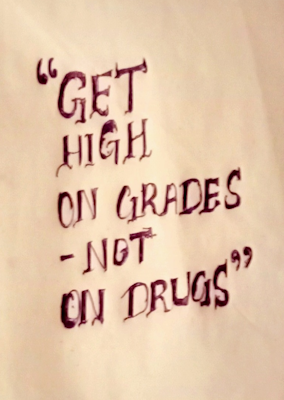 “GET
HIGH
ON GRADES
- NOT
ON DRUGS”